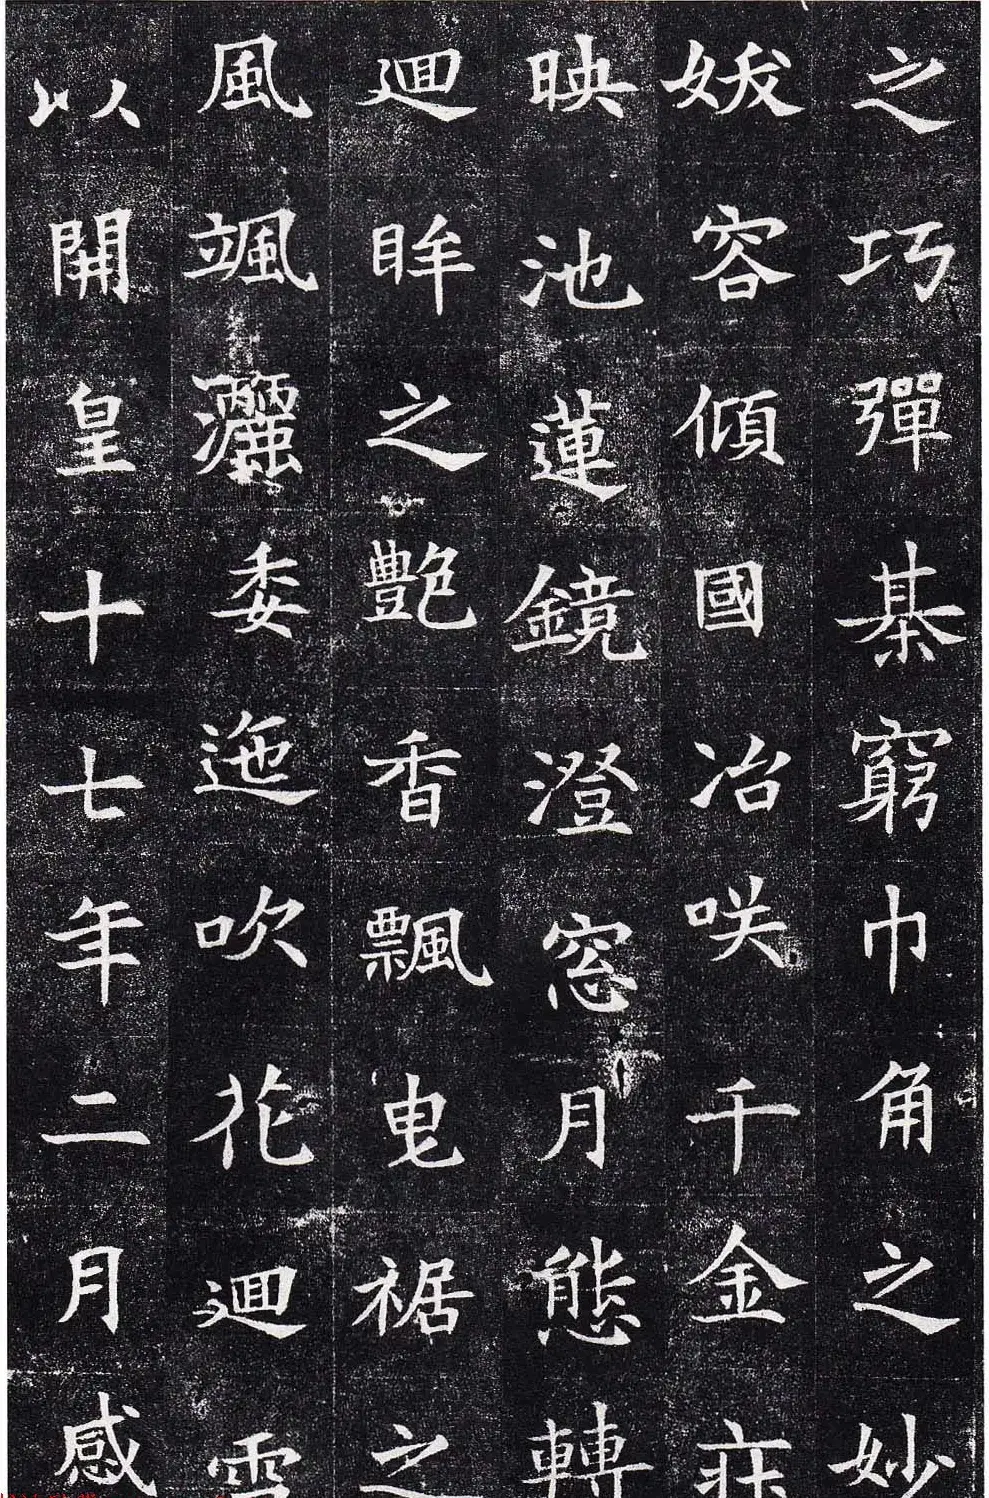 之巧彈棊窮巾角之妙
妭容傾國冶咲千金
映池蓮鏡澄窓月態轉
迴眸之艷香飄曳裾之
風颯灑委迤吹花迴雪
以開皇十七年二月感